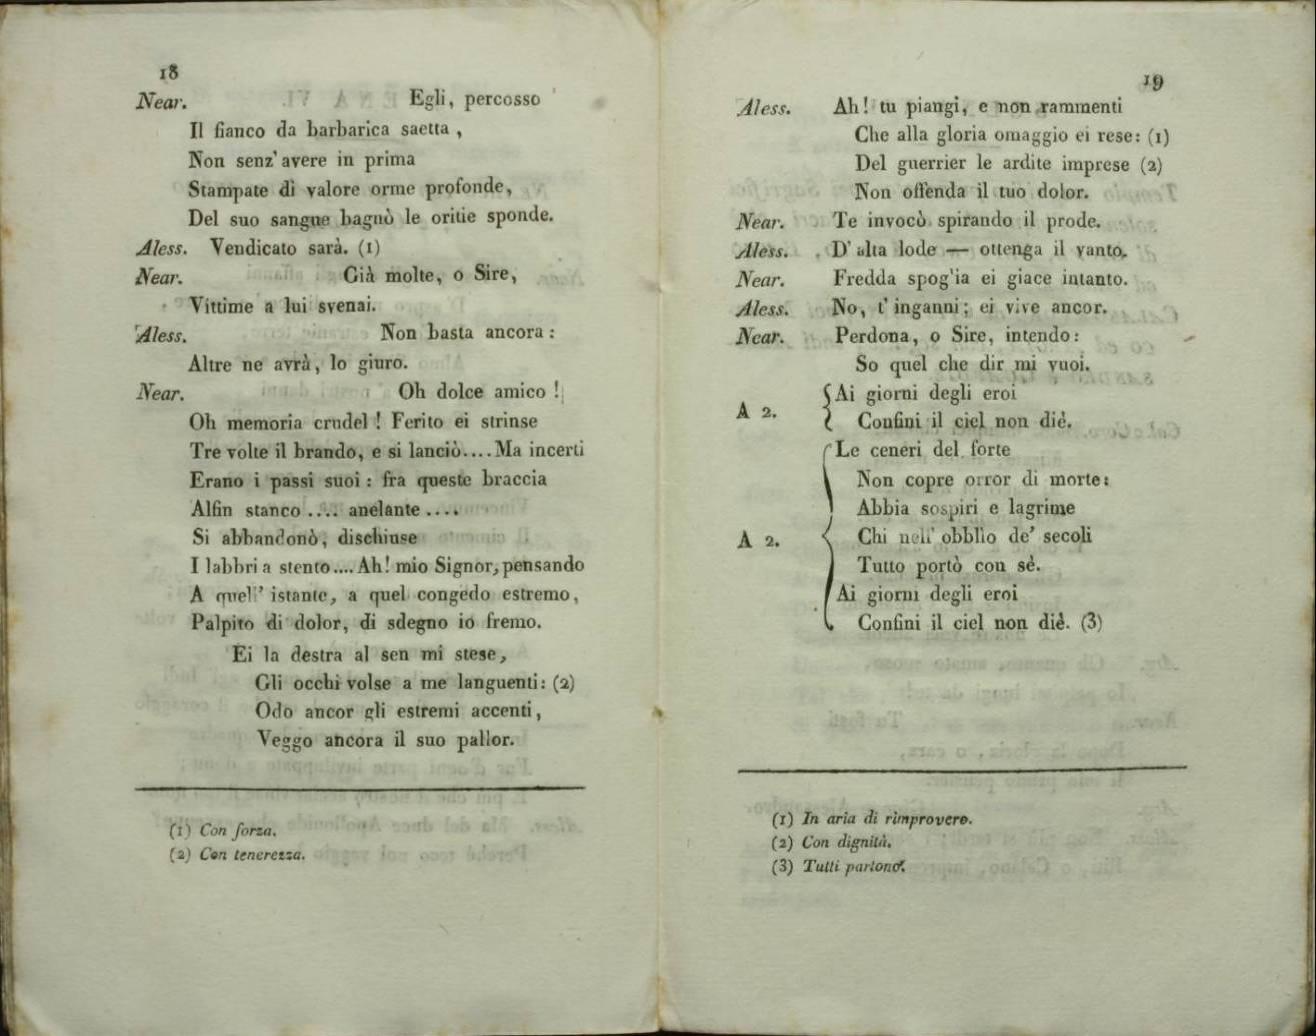 18
Near. Egli, percosso
Il fianco da barbarica saetta,
Non senz' avere in prima
Stampate di valore orme profonde,
Del suo sangue bagnò le oritie sponde.
Aless. Vendicato sarà. (1)
Near. Già molte, o Sire,
Vittime a lui svenai.
Aless. Non basta ancora:
Altre ne avrà, lo giuro.
Near. Oh dolce amico!
Oh memoria crudel! Ferito ei strinse
Tre volte il brando, e si lanciò....Ma incerti
Erano i passi suoi: fra queste braccia
Alfin stanco .... anelante ....
Si abbandonò, dischiuse
I labbri a stento....Ah! mio Signor, pensando
A quell' istante, a quel congedo estremo,
Palpito di dolor, di sdegno io fremo.
Ei la destra al sen mi stese,
Gli occhi volse a me languenti: (2)
Odo ancor gli estremi accenti,
Veggo ancora il suo pallor.
(1) Con forza.
(2) Con tenerezza.
19
Aless. Ah! tu piangi, e non rammenti
Che alla gloria omaggio ei rese: (1)
Del guerrier le ardite imprese (2)
Non offenda il tuo dolor.
Near. Te invocò spirando il prode.
Aless. D' alta lode — ottenga il vanto.
Near. Fredda spoglia ei giace intanto.
Aless. No, t' inganni; ei vive ancor.
Near. Perdona, o Sire, intendo:
So quel che dir mi vuoi.
A 2. Ai giorni degli eroi
Confini il ciel non diè.
Le ceneri del forte
Non copre orror di morte:
Abbia sospiri e lagrime
A 2. Chi nell' obblìo de' secoli
Tutto portò con sè.
Ai giorni degli eroi
Confini il ciel non diè. (3)
(1) In aria di rimprovero.
(2) Con dignità.
(3) Tutti partono.